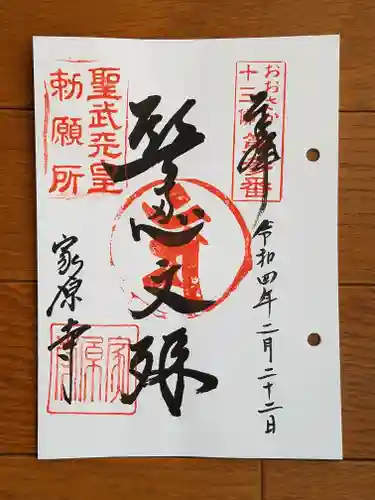 おおさか
十三佛 第三番
奉拝
令和四年二月二十二日
智恵文殊
聖武天皇
勅願所
家原寺
家原寺